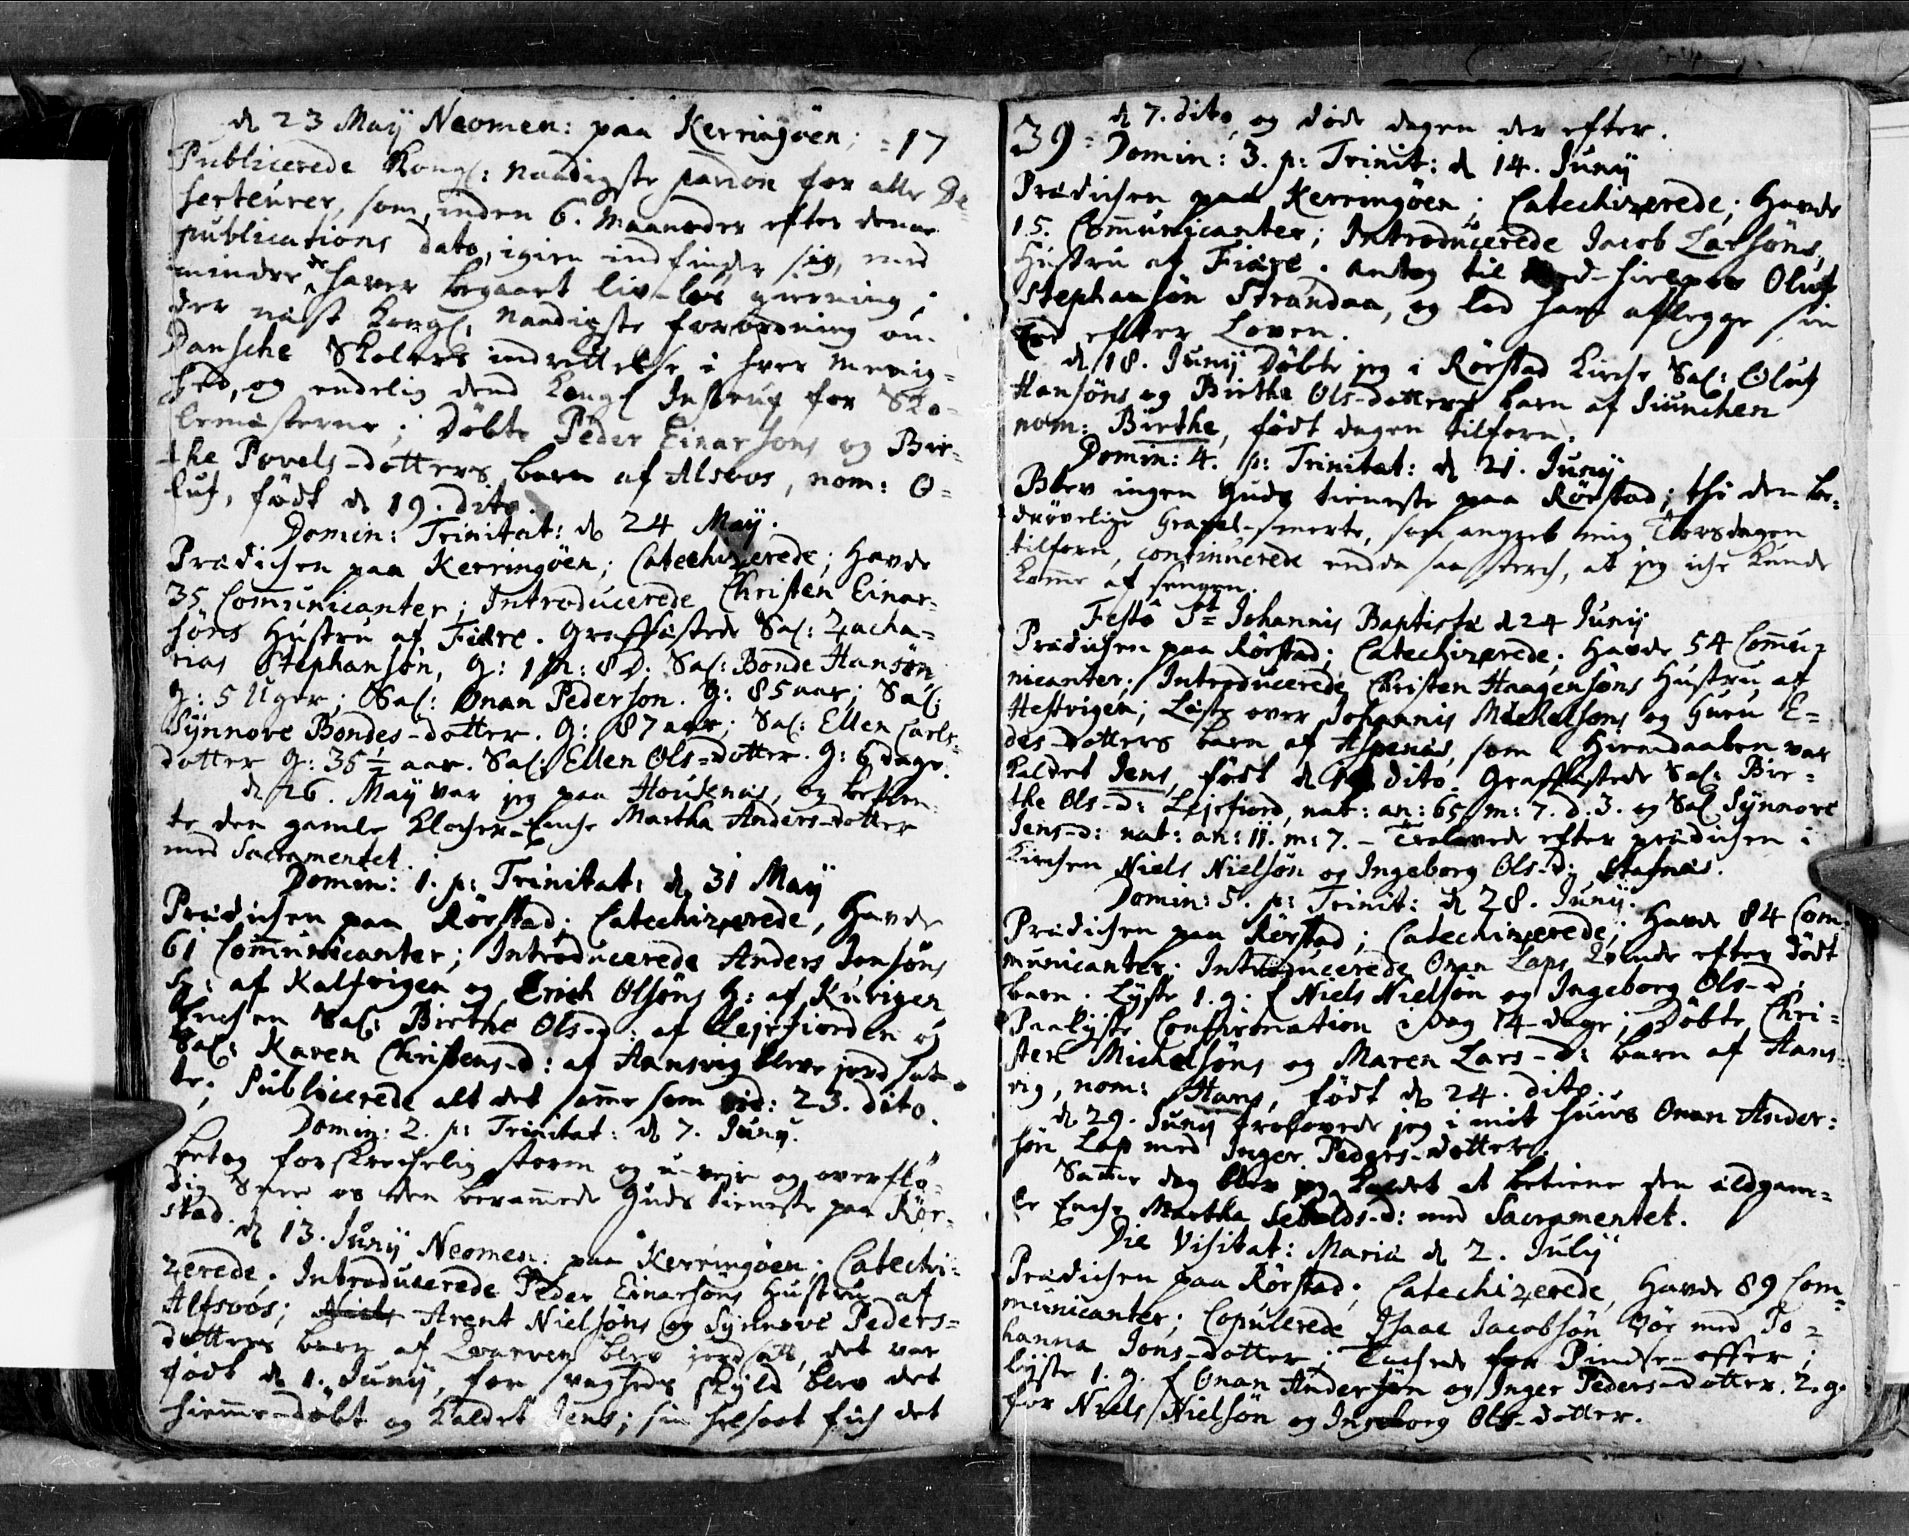 d 23 Maij Neomen: paa Kerringöen; =17
Publicerede Kongl: Naadigste pardon for alle De=
serteurer, som, inden 6. Maaneder efter denne
publications dato, igien indfinder sig, med
mindre de haver begaaet liv-lös gierning;
der næst Kongl: Naadigste forordning om
Dansche Skolers indrettelse i hver Menig=
hed, og endelig dend Kongl Instrux for Sko=
lemesterne; Döbte Peder Einarsöns og Bir=
the Povels-dotters barn af Alsvos, nom: O=
luf, födt d 19. dito.
Domin: Trinitat: d 24 Maij.
Prædichen paa Kerringöen; Catechizerede; Havde
35 Communicanter; Introducerede Christen Einar=
söns Hustru af Fiære. Graffæstede Sal: Zacha=
rias Stephansön, G: 1 M: 8 D. Sal: Bonde Hansön
G: 5 Uger; Sal: Onan Pederson. G: 85 aar; Sal:
Synnove Bondes-dotter. G: 87 aar; Sal: Ellen Carls=
dotter G: 36 ½ aar. Sal: Ellen Ols=dotter. G: 6 dage.
d 26. Maij var jeg paa Housenæs, og betien=
te den gamle Klocher-Enche Martha Anders-dotter
med Sacramentet.
Domin: 1. p: Trinitat: d 31 Maij
Prædichen paa Rörstad; Catechizerede, Havde
61 Communicanter; Introducerede Anders Jonsöns
H: af Kalfvigen og Erich Olsöns H: af Kuvigen
Enchen Sal: Birthe Ols-d: af Lejefiorden og
Sal: Karen Christens-d: af Aansvig bleve jord sat=
te; Publicerede alt det samme som vid: 23. dito.
Domin: 2. p: Trinitat: d 7. Junij.
betog forskrechelig storm og u-veje og overflö=
dig Snee os den berammede Guds tieneste paa Rör=
stad.
d 13. Junij Neomen: paa Kerringöen; Catechi=
zerede. Introducerede Peder Einarsöns Hustru af
Alfsvos; Niels Arent Nielsöns og Synnove Peders=
dotters barn af Qvarven blev jordsatt, det var
födt d 1. Junij, for svagheds skyld blev det
hiemme-döbt og kaldet Jens; sin helsoot fich det
39= d 7. dito, og döde dagen der efter.
Domin: 3. p: Trinit: d 14. Junij
Prædichen paa Kerringöen; Catechizerede; Havde
15. Communicanter; Introducerede Jacob Larsöns
Hustru af Fiære. antog til Med-hielper Oluf
Stephansön Strandaa, og lod ham aflegge sin
Eed efter Loven.
d 18. Junij Döbte jeg i Rörstad Kirche Sal: Oluf
Hansöns og Birthe Ols-dotters barn af Junchen
nom: Birthe, födt dagen tilforn.
Domin: 4. p: Trinitat: d 21. Junij
Blev ingen Guds tieneste paa Rörstad; thi den be=
drövelige Gravel-smerte, som angreb mig Torsdagen
tilforn, continuerede endda saa sterch, at jeg iche kunde
komme af sengen.
Festo St Johannis Baptistæ d 24 Junij
Prædichen paa Rörstad; Catechizerede; Havde 54 Commu=
nicanter; Introducerede Christen Haagensöns Hustru af
Hestvigen; Læste over Johannis Michelsöns og Guru E=
des-dotters barn af Aspenæs, som i Hiemdaaben var
kaldet Jens, födt d dito. Graffæstede Sal: Bir=
the Ols-d: Lejefiord, nat: an: 65. m: 7. d: 3. og Sal Synnove
Jens-d: nat: an: 11. m: 7. – Trolovede efter prædichen i
Kirchen Niels Nielsön og Ingeborg Ols-d: Stafnæs.
Domin: 5. p: Trinit: d 28. Junij.
Prædichen paa Rörstad; Catechizerede; Havde 84 Com=
municanter; Introducerede Onan Laps Qvinde efter dödt
barn. Lyste 1. g. f Niels Nielsön og Ingeborg Ols-d.
Paalyste Confirmation i dag 14-dage; Döbte Chri=
sten Michelsöns og Maren Lars-d: barn af Hans=
vig, nom: Hans, födt d 24. dito.
d 29. Junij trolovede jeg i mit huus Onan Ander=
sön Lap med Inger Peders-dotter.
Samme dag blev jeg kaldet at betiene den ældgam=
le Enche Martha Sebolds-d: med Sacramentet.
Die Visitat: Mariæ d 2. Julij
Prædichen paa Rörstad; Catechizerede, Havde 89 Com=
municanter; Copulerede Isaac Jacobsön Bör med Jo=
hanna Jons-dotter; Tachede for Pindse-offer;
lyste 1. g. f Onan Andersön og Inger Peders-dotter. 2. g.
for Niels Nielsön og Ingeborg Ols-dotter.